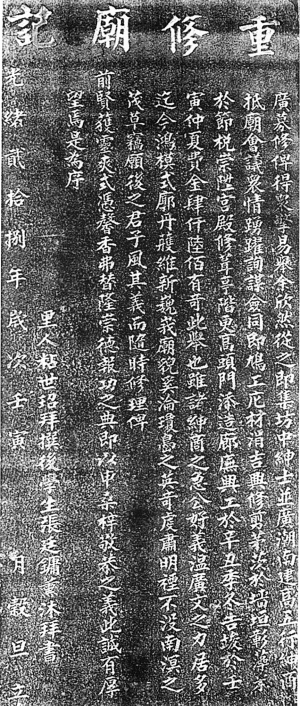 重修廟記
廣募修俾得眾擎易舉余欣然從之即集坊中紳士並廣潮南建福五行紳商
抵廟會議眾情踴躍詢謀僉同即鳩工庀材涓吉興修剪茅茨於牆垣彰藻
於節梲崇陛宮殿修葺亭階更高頭門添造廊廡興工於辛丑季冬告竣於壬
寅仲夏費金肆仟陸佰有奇此舉也雖諸紳商之急公好義溫廣文之力居多
迄今鴻模式廓丹雘維新巍我廟貌奚淪瓊島之英奇虔肅明禋不没南溟之
茂草竊願後之君子風其義而隨時修理俾
前賢獲靈爽式憑馨香弗替隆崇德報功之典即以申桑梓敬恭之義此誠有厚
望焉是為序
里人 世 拜撰後學生張廷鏞薰沐拜書
光緒貳拾捌年歲次壬寅 月穀旦